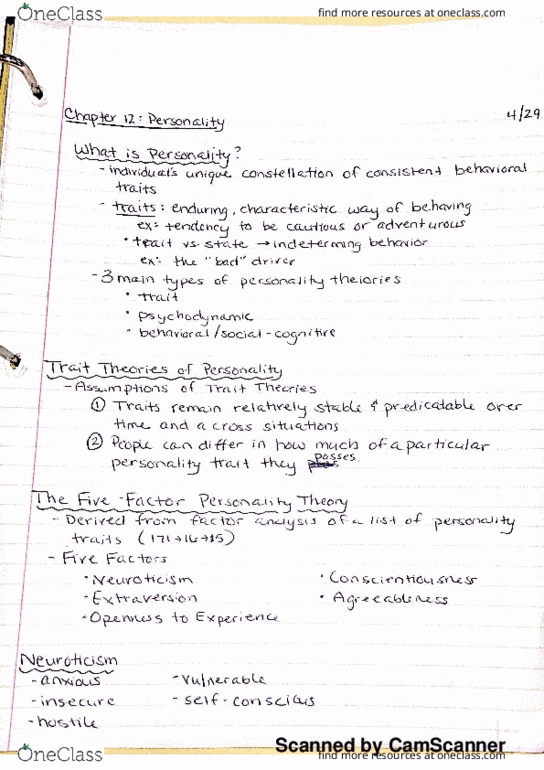 OneClass
find more resources at oneclass.com
Chapter 12: Personality
4/29
What is Personality?
- individual's unique constellation of consistent behavioral
traits
- traits: enduring, characteristic way of behaving
ex: tendency to be cautious or adventurous
• trait vs. state → indeterming behavior
ex: the "bad" driver
- 3 main types of personality theiories
• trait
• psychodynamic
• behavioral/social-cognitive
Trait Theories of Personality
- Assumptions of Trait Theories
① Traits remain relatively stable & predicatable over
time and a cross situations
② People can differ in how much of a particular
personality trait they posses
The Five-Factor Personality Theory
- Derived from factor analysis of a list of personality
traits (171→16→15)
- Five Factors
• Neuroticism
• Conscientiousness
• Extraversion
• Agreeableness
• Openness to Experience
Neuroticism
- anxious
- vulnerable
- insecure
- self-conscious
- hostile
Scanned by CamScanner
OneClass
find more resources at oneclass.com